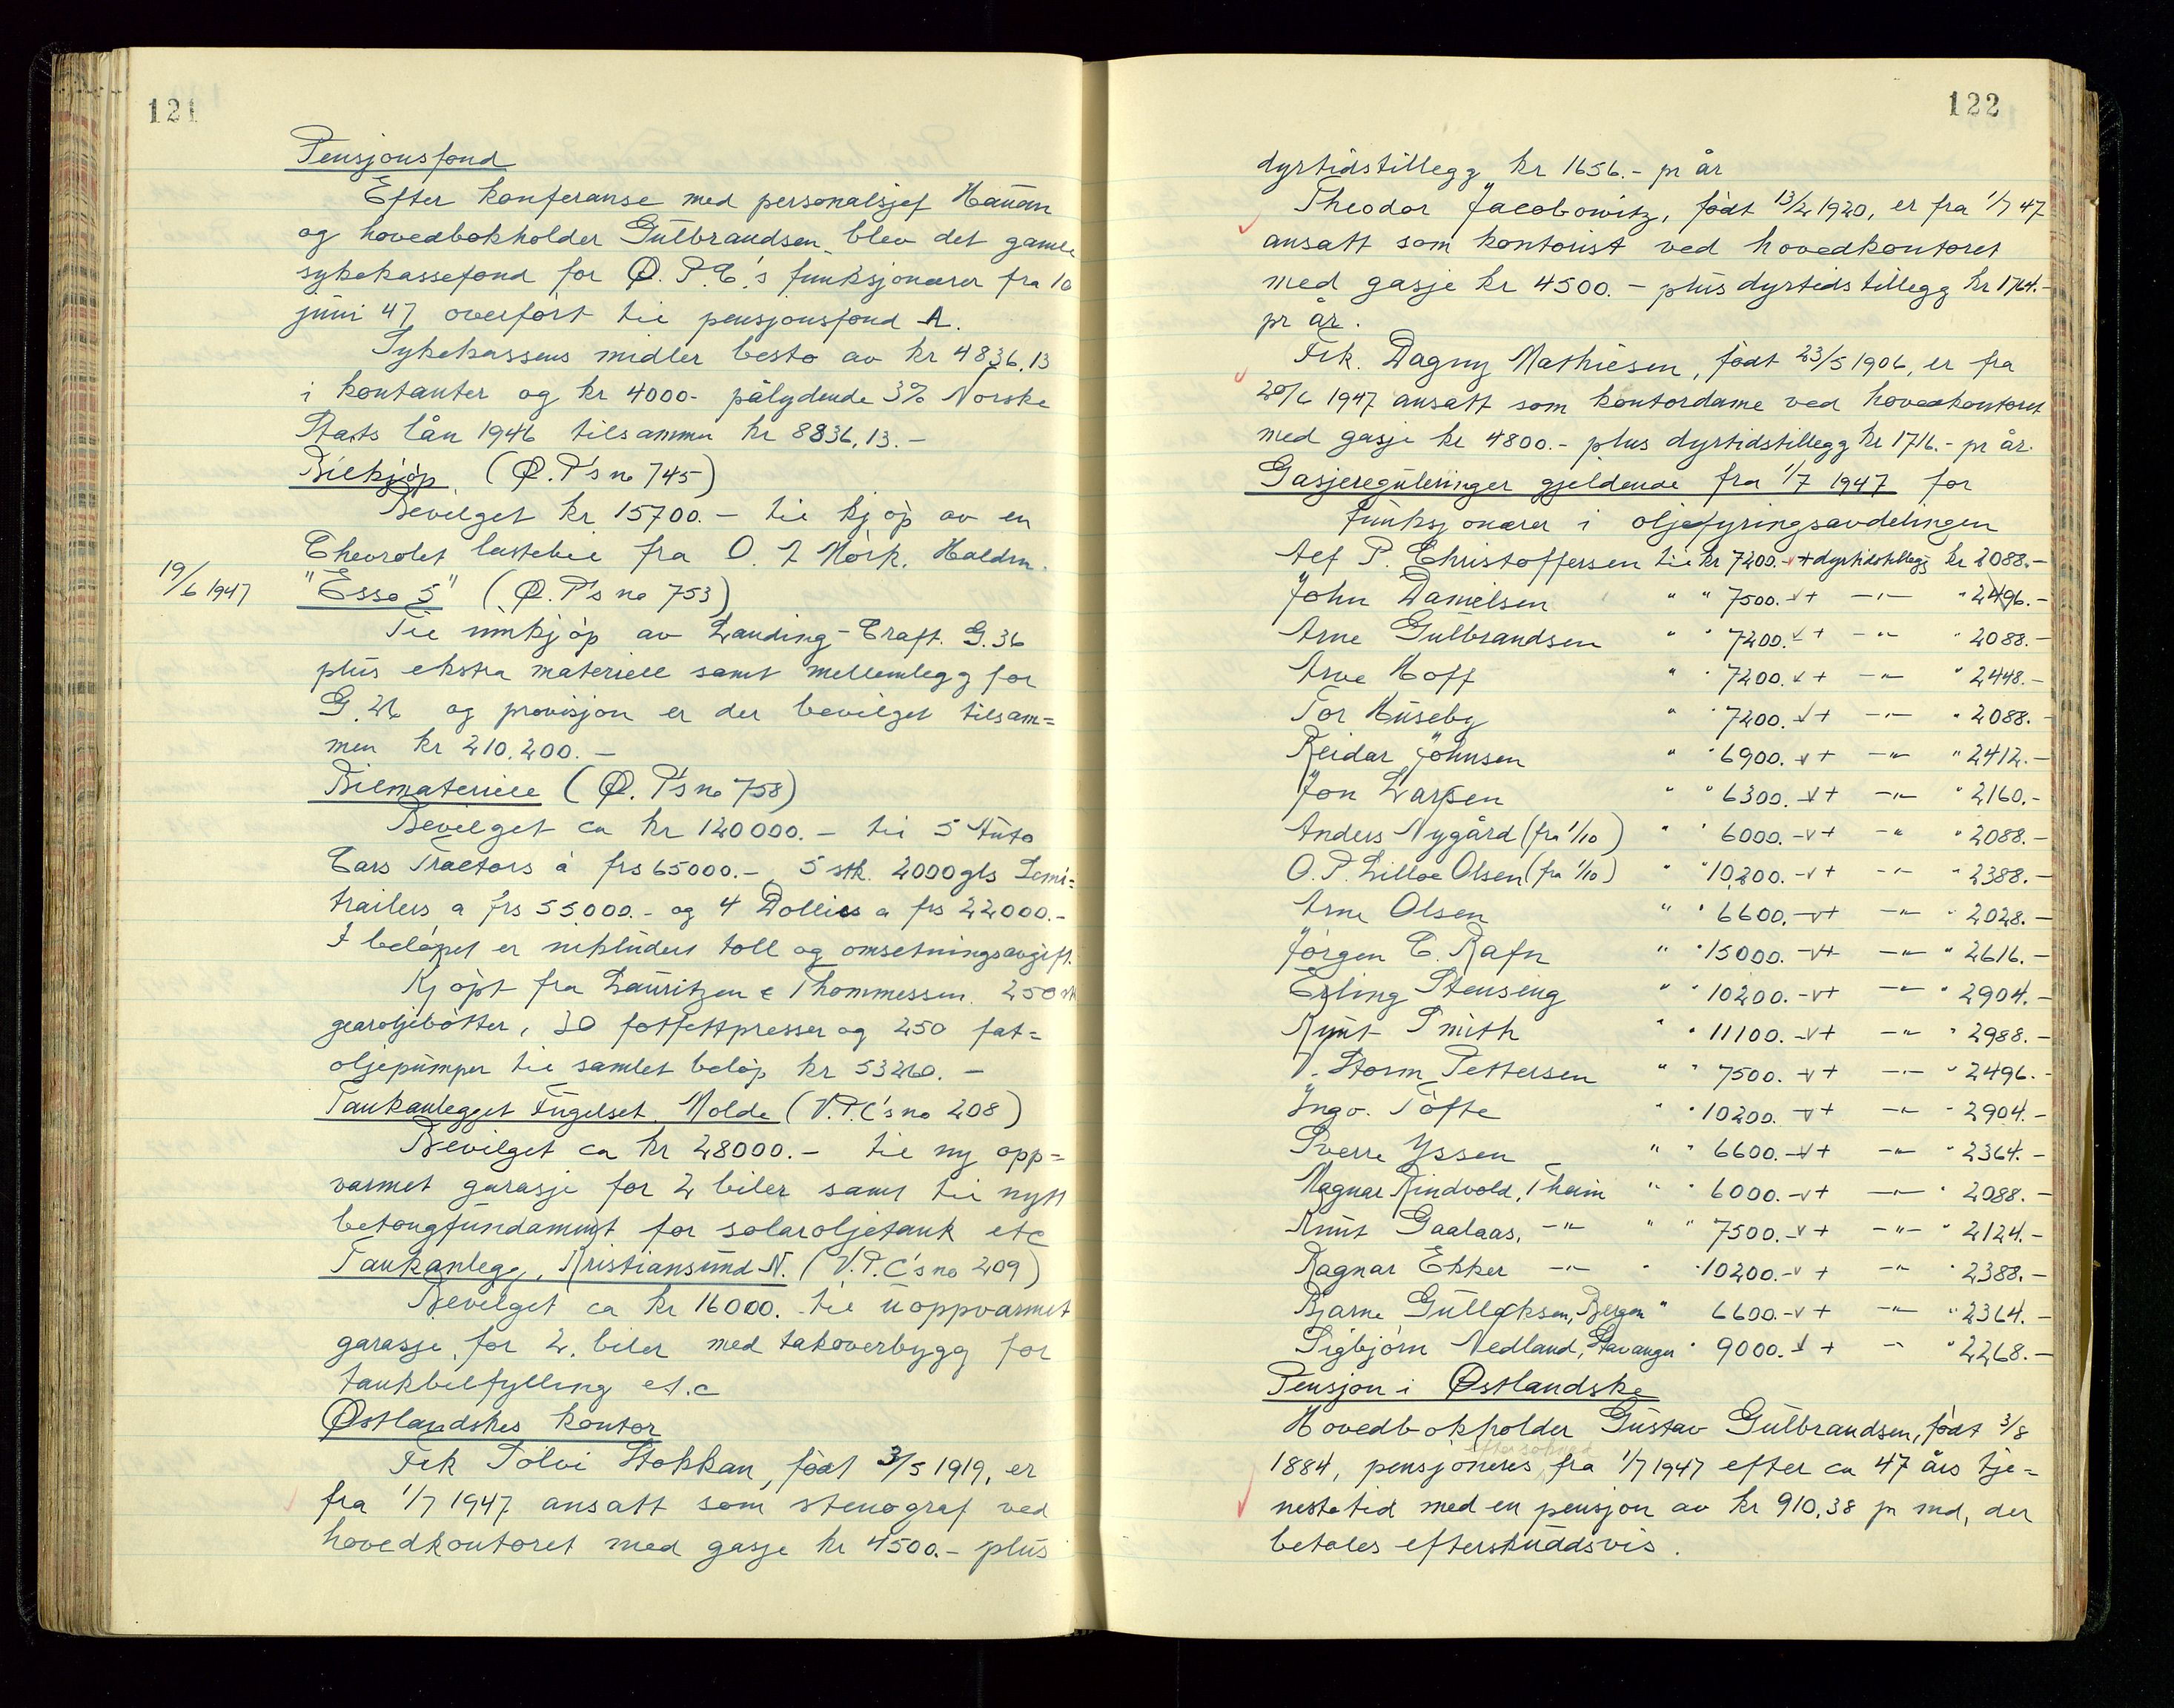 121
Pensjonsfond
Efter konferanse med personalsjef Hauan
og hovedbokholder Gulbrandsen blev det gamle
sykekassefond for Ø.P.C.'s funksjonærer fra 10
juni 47 overført til pensjonsfond A.
Sykekassens midler besto av kr 4836,13
i kontanter og kr 4000- pålydende 3% Norske
Stats lån 1946 tilsammen kr 8836,13.-
Bilkjøp. (Ø.P's no 745)
Bevilget kr 15700.- til kjøp av en
Chevrolet lastebil fra O. A Mørk. Halden.
19/6 1947 "Esso 5" (Ø.P's no 753)
Til innkjøp av Landing-Craft. G.36
plus ekstra materiell samt mellemlegg for
G.26 og provisjon er der bevilget tilsam=
men kr 210.200.-
Bilmateriell (Ø.P's no 758)
Bevilget ca kr 120000.- til 5 Auto
Cars Tractors á frs 65000.-, 5 stk. 2000 gls Semi=
trailers a frs 55000.- og 4 Dollies a frs 22000.-
I beløpet er inkludert toll og omsetningsavgift.
Kjøpt fra Lauritzen & Thommessen. 250 stk
gearoljebøtter, 30 fotfettpresser og 250 fat=
oljepumper til samlet beløp kr 53260.-
Tankanlegget Fugelset, Molde (V.P.C's no 208)
Bevilget ca kr 28000.- til ny opp=
varmet garasje for 2 biler samt til nytt
betongfundament for solaroljetank etc
Tankanlegg, Kristiansund N. (V.P.C's no 209)
Bevilget ca kr 16000. til uoppvarmet
garasje for 2. biler med takoverbygg for
tankbilfylling et.c
Østlandskes kontor
Frk Solvi Stokkan, født 3/5 1919, er
fra 1/7 1947 ansatt som stenograf ved
hovedkontoret med gasje kr 4500.- plus
122
dyrtidstillegg kr 1656.- pr år
Theodor Jacobowitz, født 13/2 1920, er fra 1/7 47
ansatt som kontorist ved hovedkontoret
med gasje kr 4500.- plus dyrtidstillegg kr 1764.-
pr år.
Frk. Dagny Mathiesen, født 23/5 1906, er fra
20/6 1947 ansatt som kontordame ved hovedkontoret
med gasje kr 4800.- plus dyrtidstillegg kr 1716.- pr år.
Gasjereguleringer gjeldende fra 1/7 1947 for
funksjonærer i oljefyringsavdelingen
Alf P. Christoffersen til kr 7200.- + dyrtidstillegg kr 2088.-
John Danielsen " " 7500.- + -"- " 2496.-
Arne Gulbrandsen " " 7200.- + -"- " 2088.-
Arve Hoff " " 7200. + -"- " 2448.-
Tor Huseby " " 7200. + -"- " 2088.-
Reidar Johnsen " " 6900. + -"- " 2412.-
Jon Larsen " " 6300. + -"- " 2160.-
Anders Nygård (fra 1/10) " " 6000.- + -"- " 2088.-
O.P. Lilloe Olsen (fra 1/10) " " 10,200.- + -"- " 2388.-
Arne Olsen " " 6600.- + -"- " 2028.-
Jørgen C. Rafn " " 15000.- + -"- " 2616.-
Erling Stenseng " " 10200.- + -"- " 2904.-
Knut Smith " " 11100.- + -"- " 2988.-
V. Storm Pettersen " " 7500.- + -"- " 2496.-
Ingv. Tofte " " 10200. + -"- " 2904.-
Sverre Yssen " " 6600.- + -"- " 2364.-
Magnar Rindvold, Theim " " 6000.- + -"- " 2088.-
Knut Gaalaas, -"- " " 7500.- + -"- " 2124.-
Ragnar Ekker -"- " " 10200.- + -"- " 2388.-
Bjarne Gulleksen, Bergen " 6600.- + -"- " 2364.-
Sigbjørn Nedland, Stavanger " 9000. + -"- " 2268.-
Pensjon i Østlandske
Hovedbokholder Gustav Gulbrandsen, født 3/8
1884, pensjoneres fra 1/7 1947 efter ca 47 års tje=
nestetid med en pensjon av kr 910,38 pr md, der
betales efterskuddsvis.